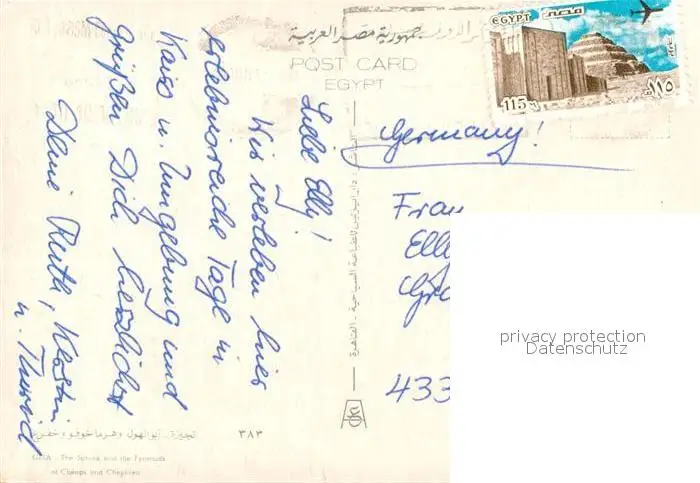 جمهورية مصر العربية
POST CARD
EGYPT
EGYPT مصر
115
١١٥
Liebe Elly!
Wir verleben hier
erlebnisreiche Tage in
Kairo u. Umgebung und
grüßen Dich herzlichst
Deine Ruth, Kerstin
u.
Germany!
Frau
Elly
433
privacy protection
Datenschutz
٣٨٣
الجيزة - أبو الهول وهرما خوفو وخفرع
GIZA - The Sphinx and the Pyramids
of Cheops and Chephren